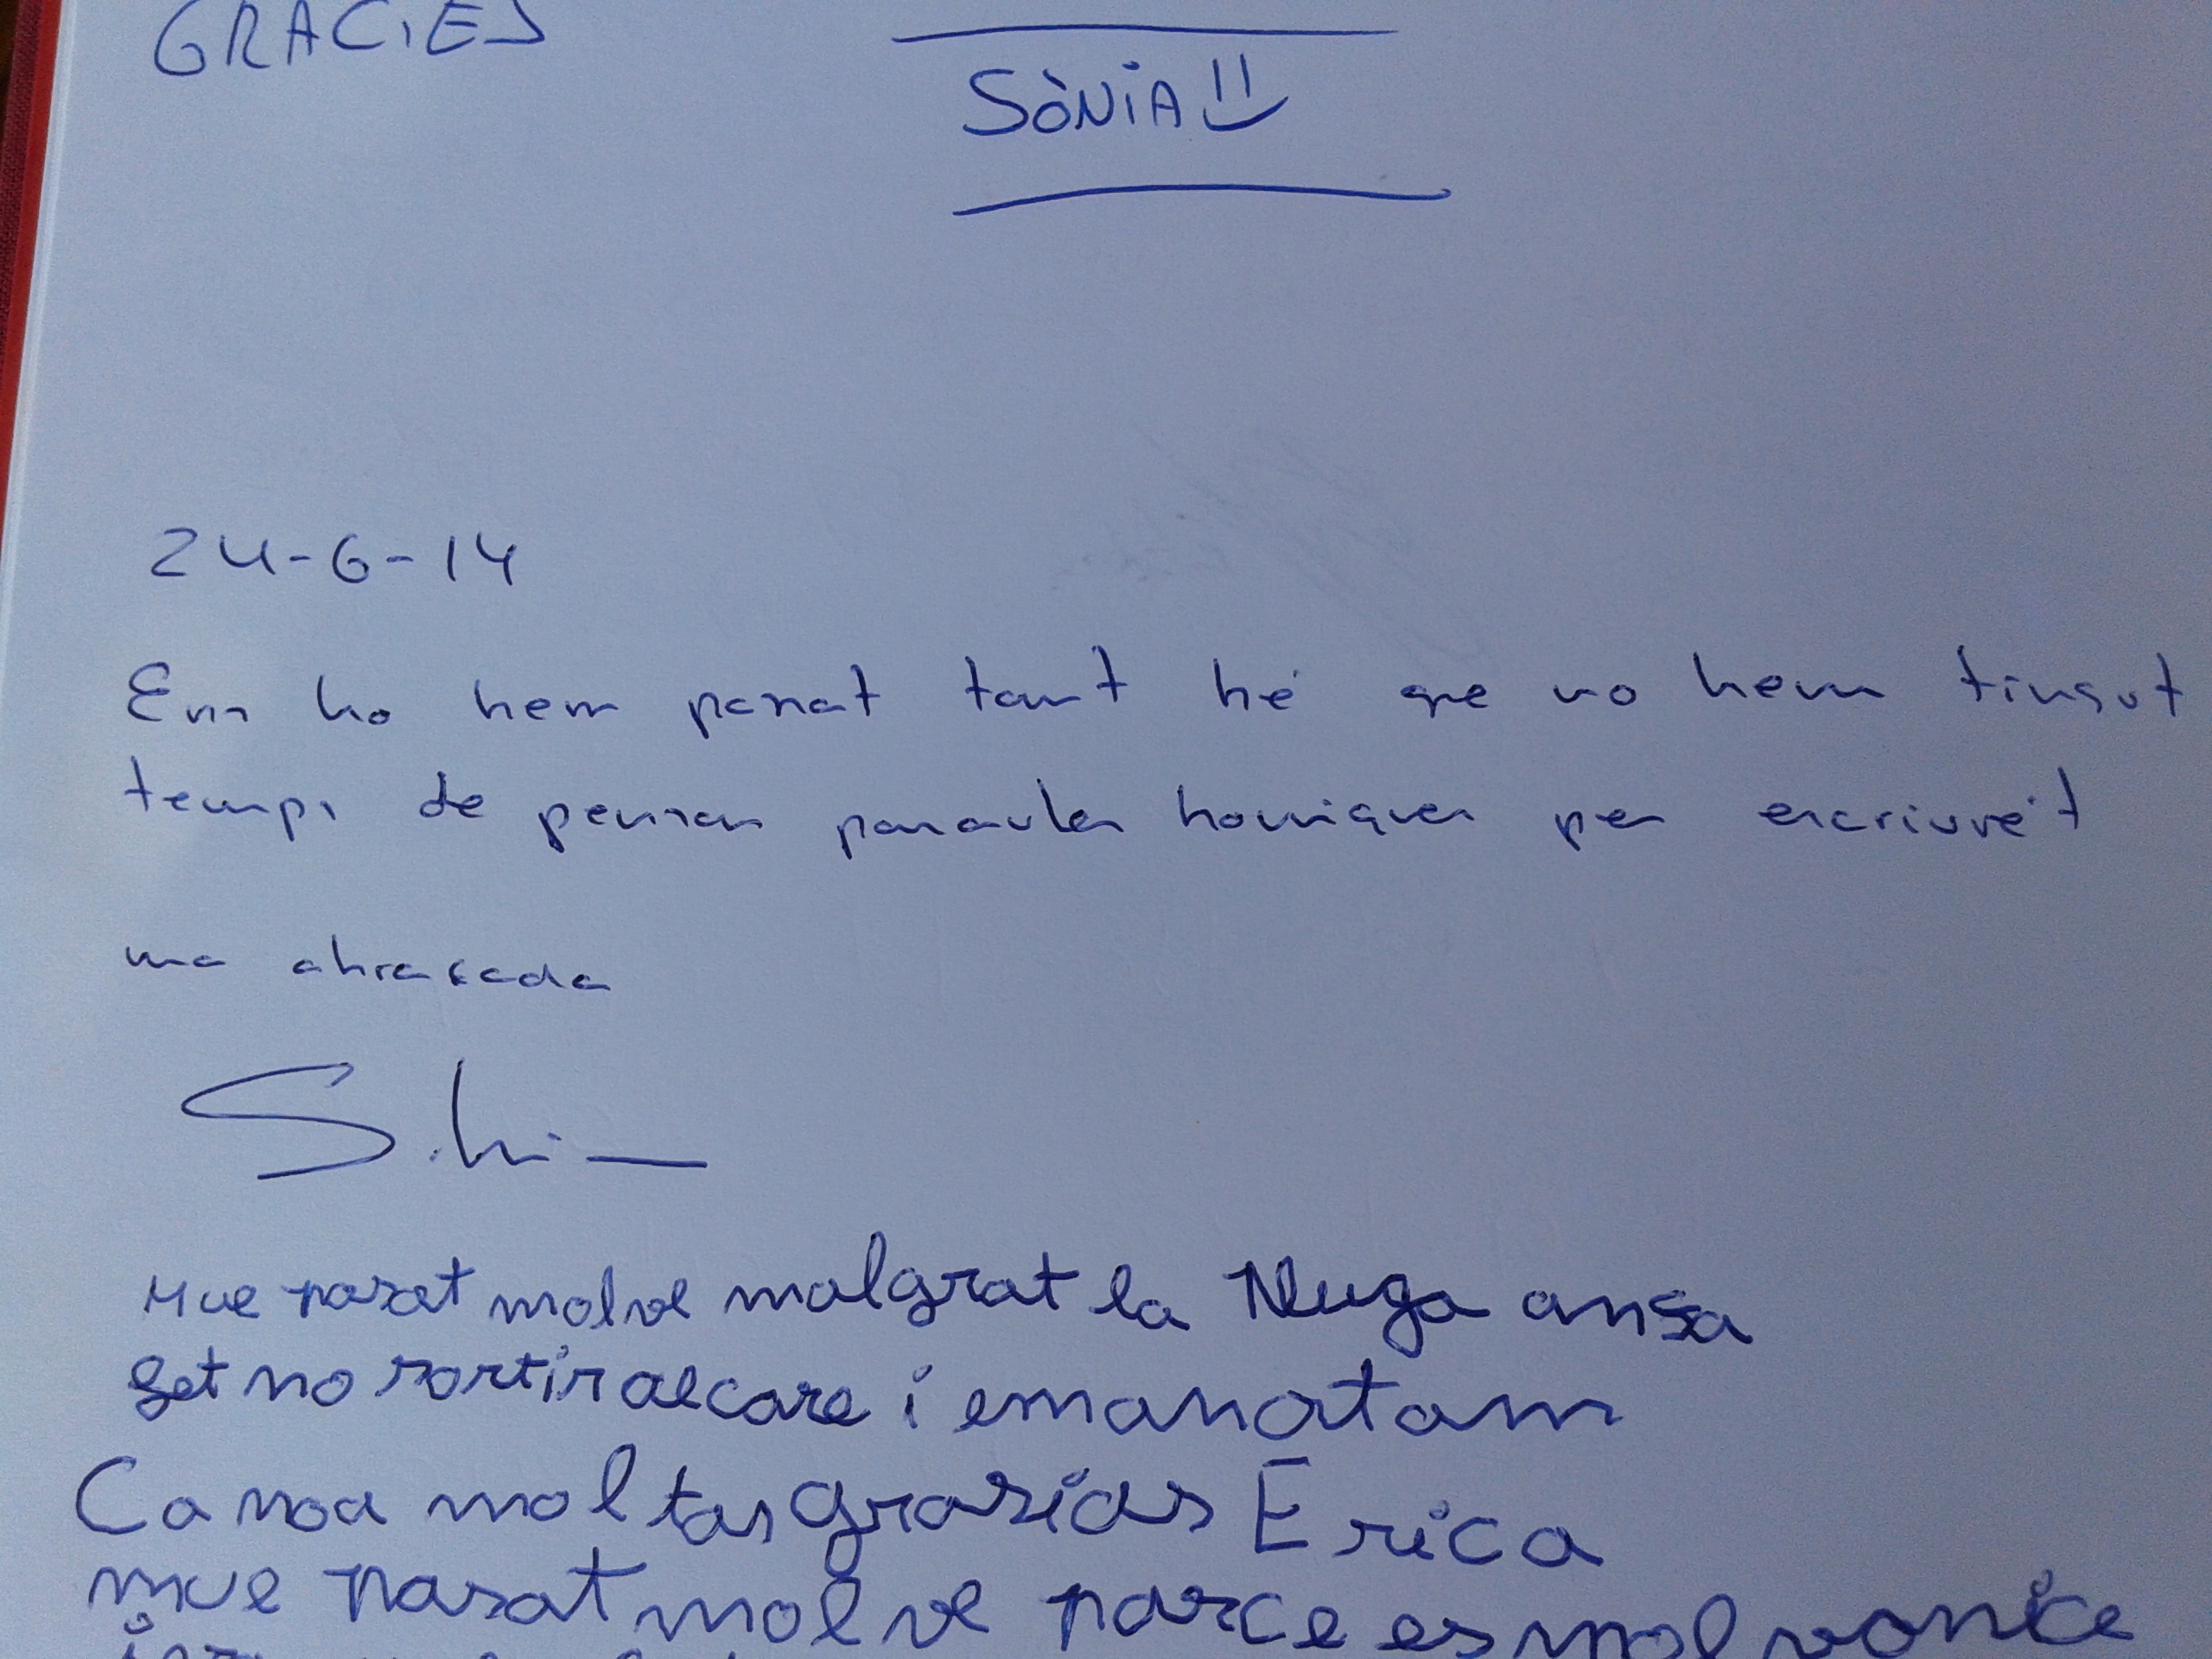 GRACIES
SÒNIA
24-6-14
Ens ho hem passat tant bé que no hem tingut
temps de pensar paraules boniques per escriure't
una abraçada
Mue pasat mol ve malgrat la Nuga ansa
get no sortir al care i emanat am
Ca noa mol tas grasias Erica
mue pasat mol ve parce es mol vonic